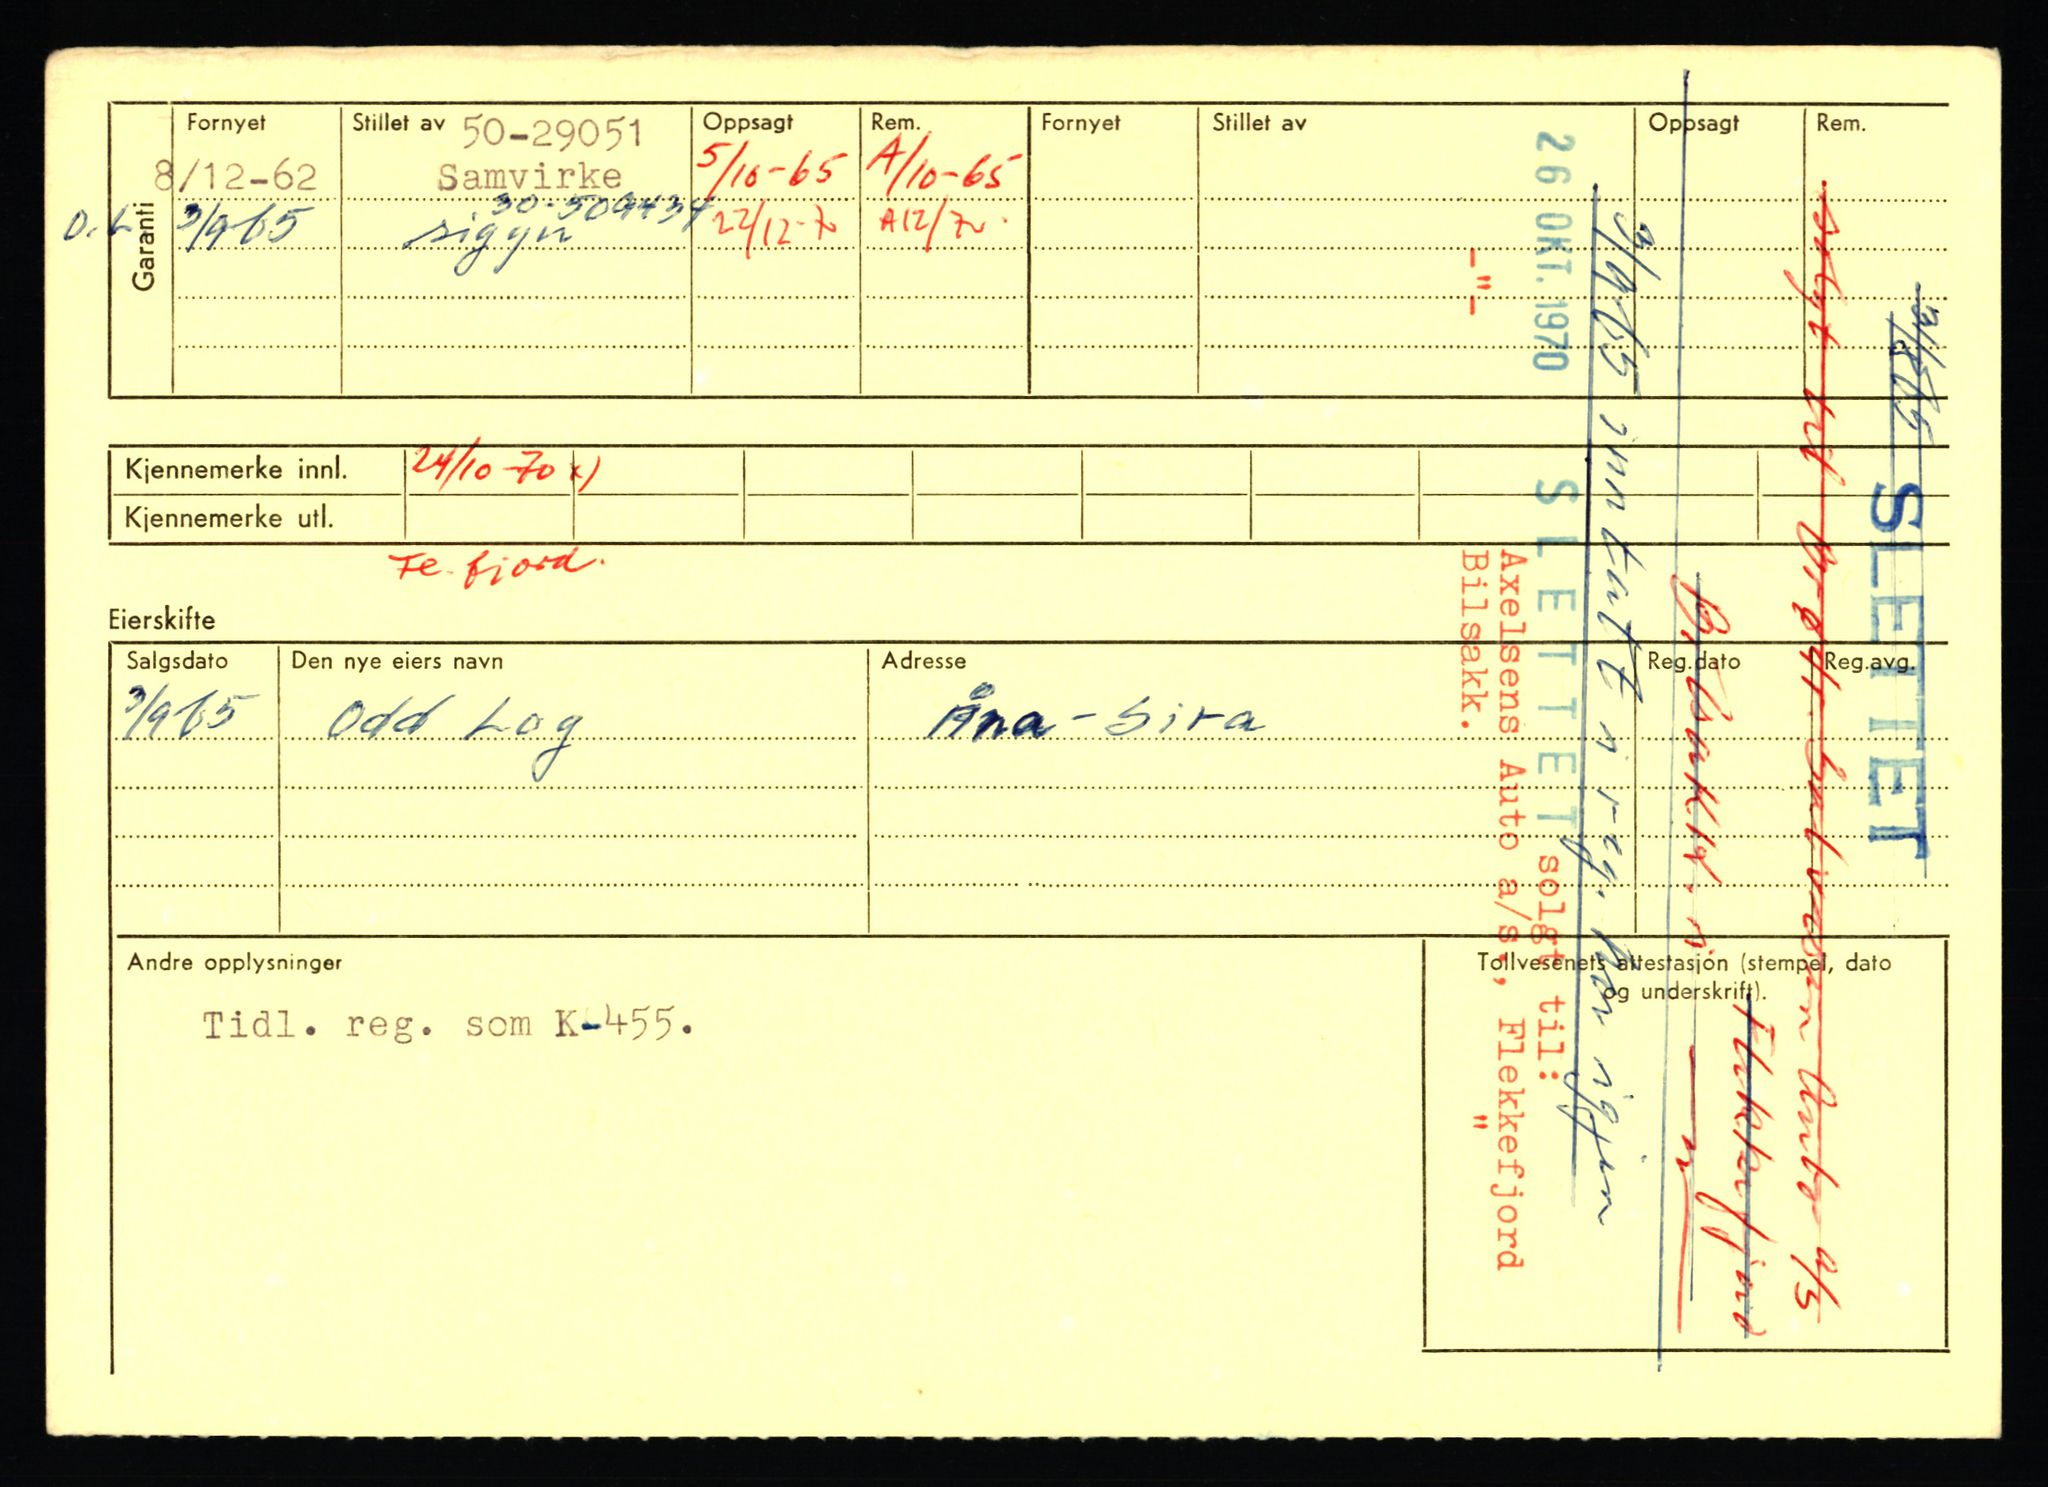 Fornyet Stillet av 50-29051 Oppsagt Rem. Fornyet Stillet av Oppsagt Rem.
8/12-62 Samvirke 5/10-65 A/10-65
Garanti
O.L 3/9 65 30-509434 22/12-70 A12/70
sigyn
Kjennemerke innl. 24/10-70 x)
Kjennemerke utl.
Fe.fjord.
Eierskifte
Salgsdato Den nye eiers navn Adresse Reg.dato Reg.avg.
3/9 65 Odd Log Åna-Sira
Andre opplysninger
Tidl. reg. som K-455.
Tollvesenets attestasjon (stempel, dato
og underskrift).
SLETTET
solgt til
Flekkefjord
3/9 65 inntatt i reg.
26 OKT. 1970 SLETTET solgt til:
Axelsens Auto a/s., Flekkefjord
-"- Bilsakk. "